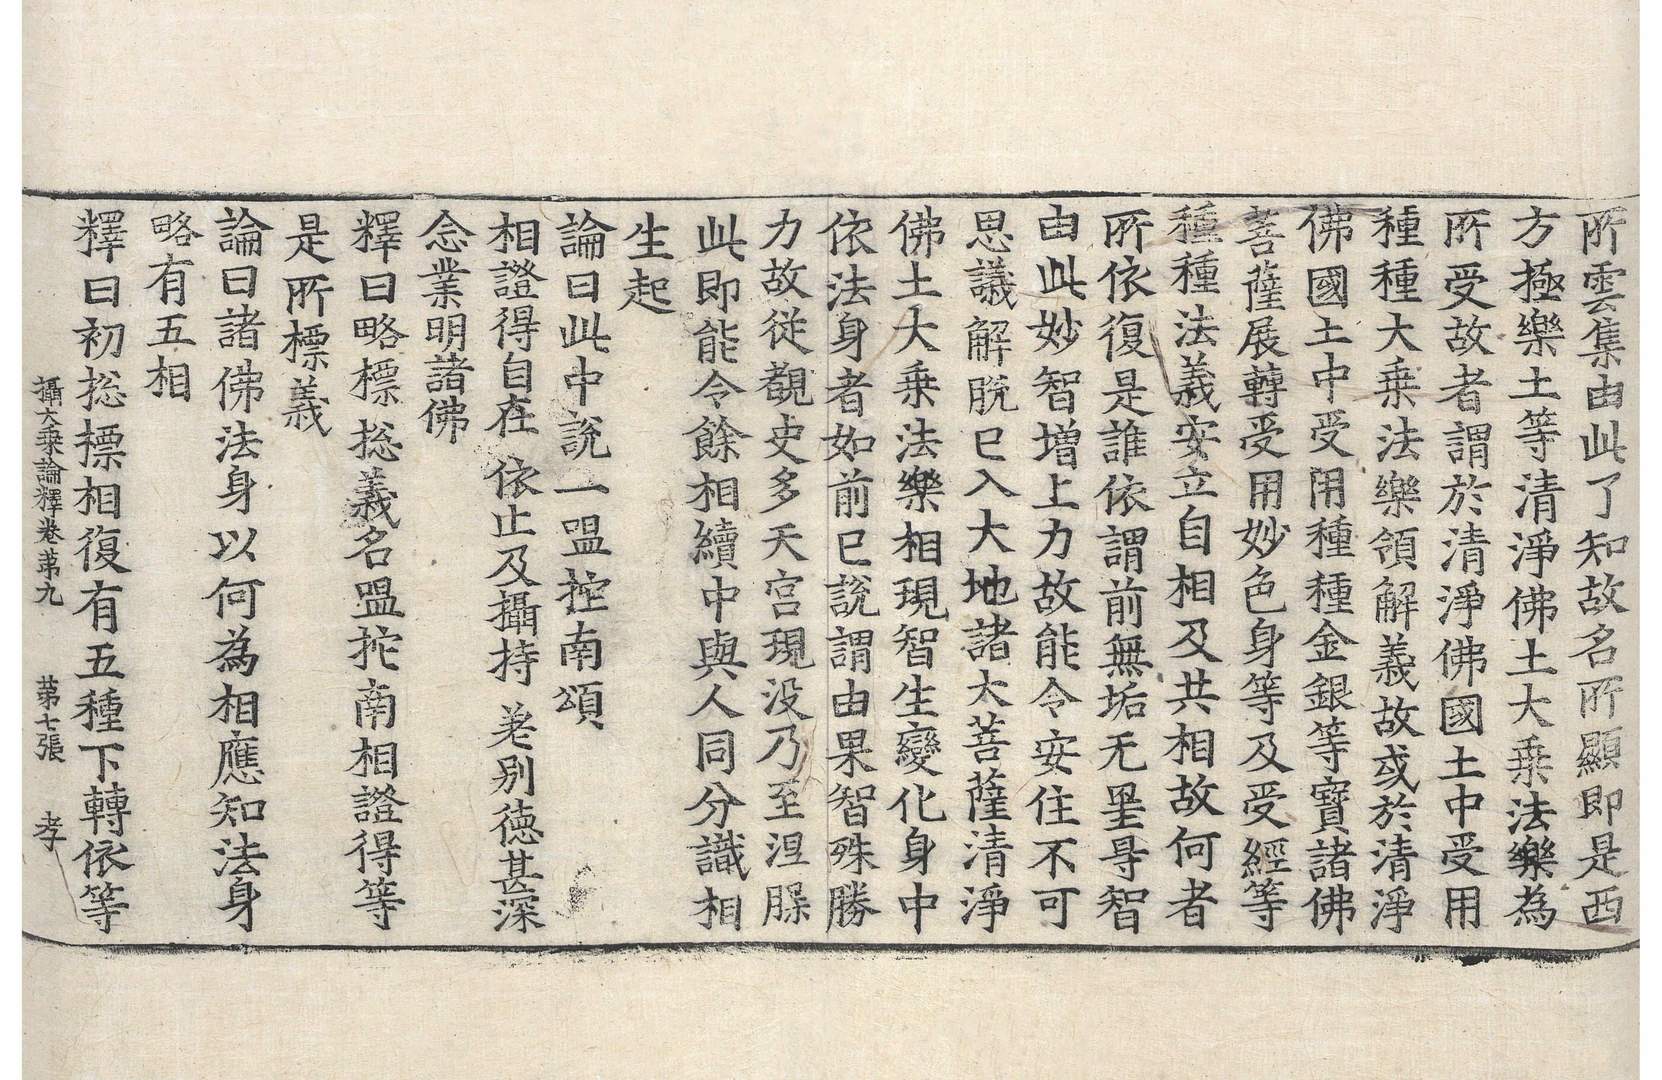 所雲集由此了知故名所顯即是西
方極樂土等清淨佛土大乗法樂為
所受故者謂於清淨佛國土中受用
種種大乗法樂領解義故或於清淨
佛國土中受用種種金銀等寶諸佛
菩薩展轉受用妙色身等及受經等
種種法義安立自相及共相故何者
所依復是誰依謂前無垢无罣㝵智
由此妙智增上力故能令安住不可
思議解脫已入大地諸大菩薩清淨
佛土大乗法樂相現智生變化身中
依法身者如前已說謂由果智殊勝
力故從覩史多天宫現没乃至涅槃
此即能令餘相續中與人同分識相
生起
論曰此中說一嗢拕南頌
相證得自在 依止及攝持 差别德甚深
念業明諸佛
釋曰略標揔義名嗢拕南相證得等
是所標義
論曰諸佛法身以何為相應知法身
略有五相
釋曰初揔標相復有五種下轉依等
攝大乗論釋卷第九 第七張 孝